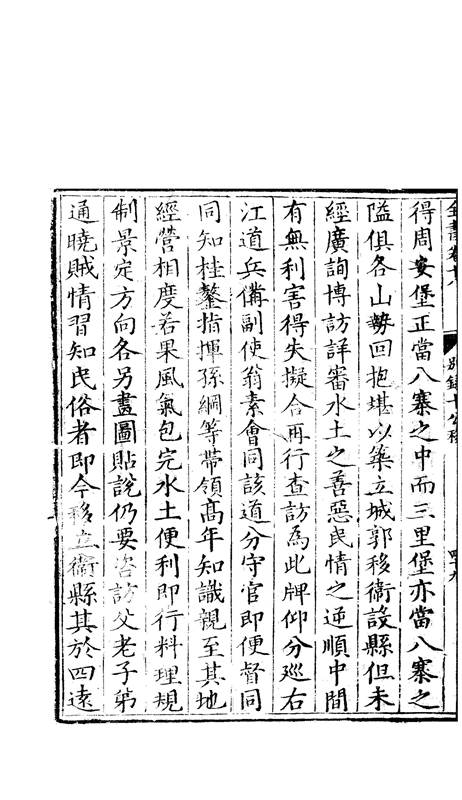 全書卷十八　別錄十公移　四十九
得周安堡正當八寨之中而三里堡亦當八寨之
隘俱各山勢回抱堪以築立城郭移衛設縣但未
經廣詢博訪詳審水土之善惡民情之逆順中間
有無利害得失擬合再行查訪為此牌仰分廵右
江道兵備副使翁素會同該道分守官即便督同
同知桂鏊指揮孫綱等帶領髙年知識親至其地
經營相度若果風氣包完水土便利即行料理規
制景定方向各另畫圖貼說仍要咨訪父老子第
通曉賊情習知民俗者即今移立衛縣其於四遠